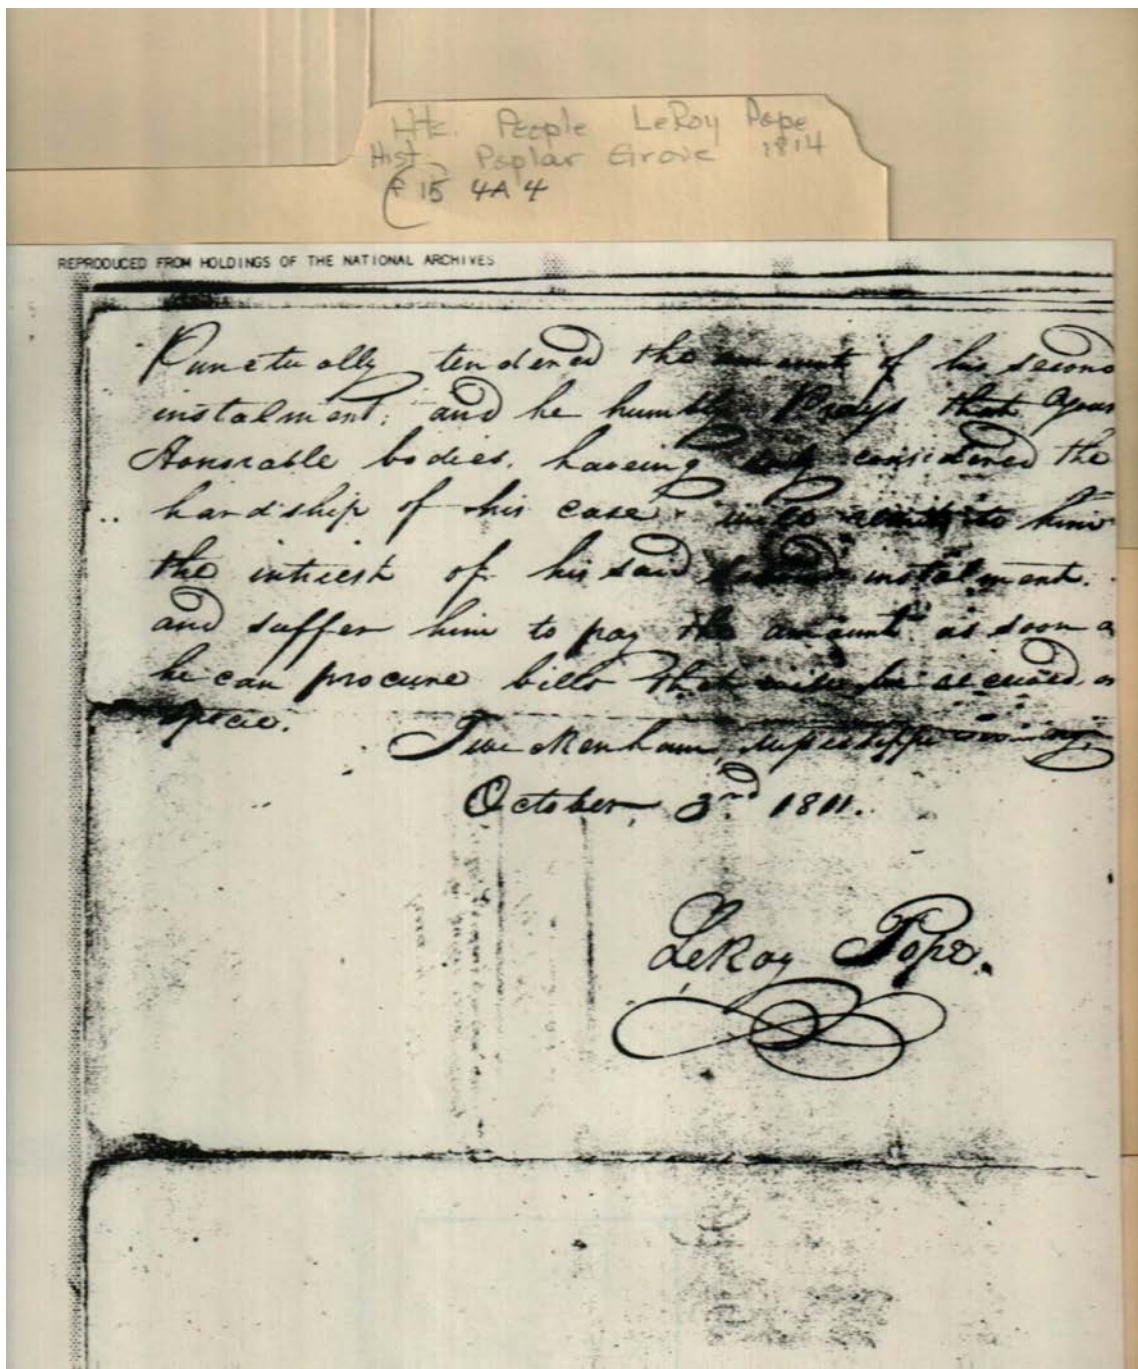 Hts. People LeRoy Pope
Hist Poplar Grove 1814
F 15 4A 4
REPRODUCED FROM HOLDINGS OF THE NATIONAL ARCHIVES
Punctually tendered the amount of his second
instalment: and he humbly Prays that your
Honorable bodies, haveing duly considered the
hardship of his case will remit to him
the intrest of his said second instalment.
and suffer him to pay the amount as soon a
he can procure bills that will be received or
specie.
Twickenham,
October, 3rd 1811.
LeRoy Pope.